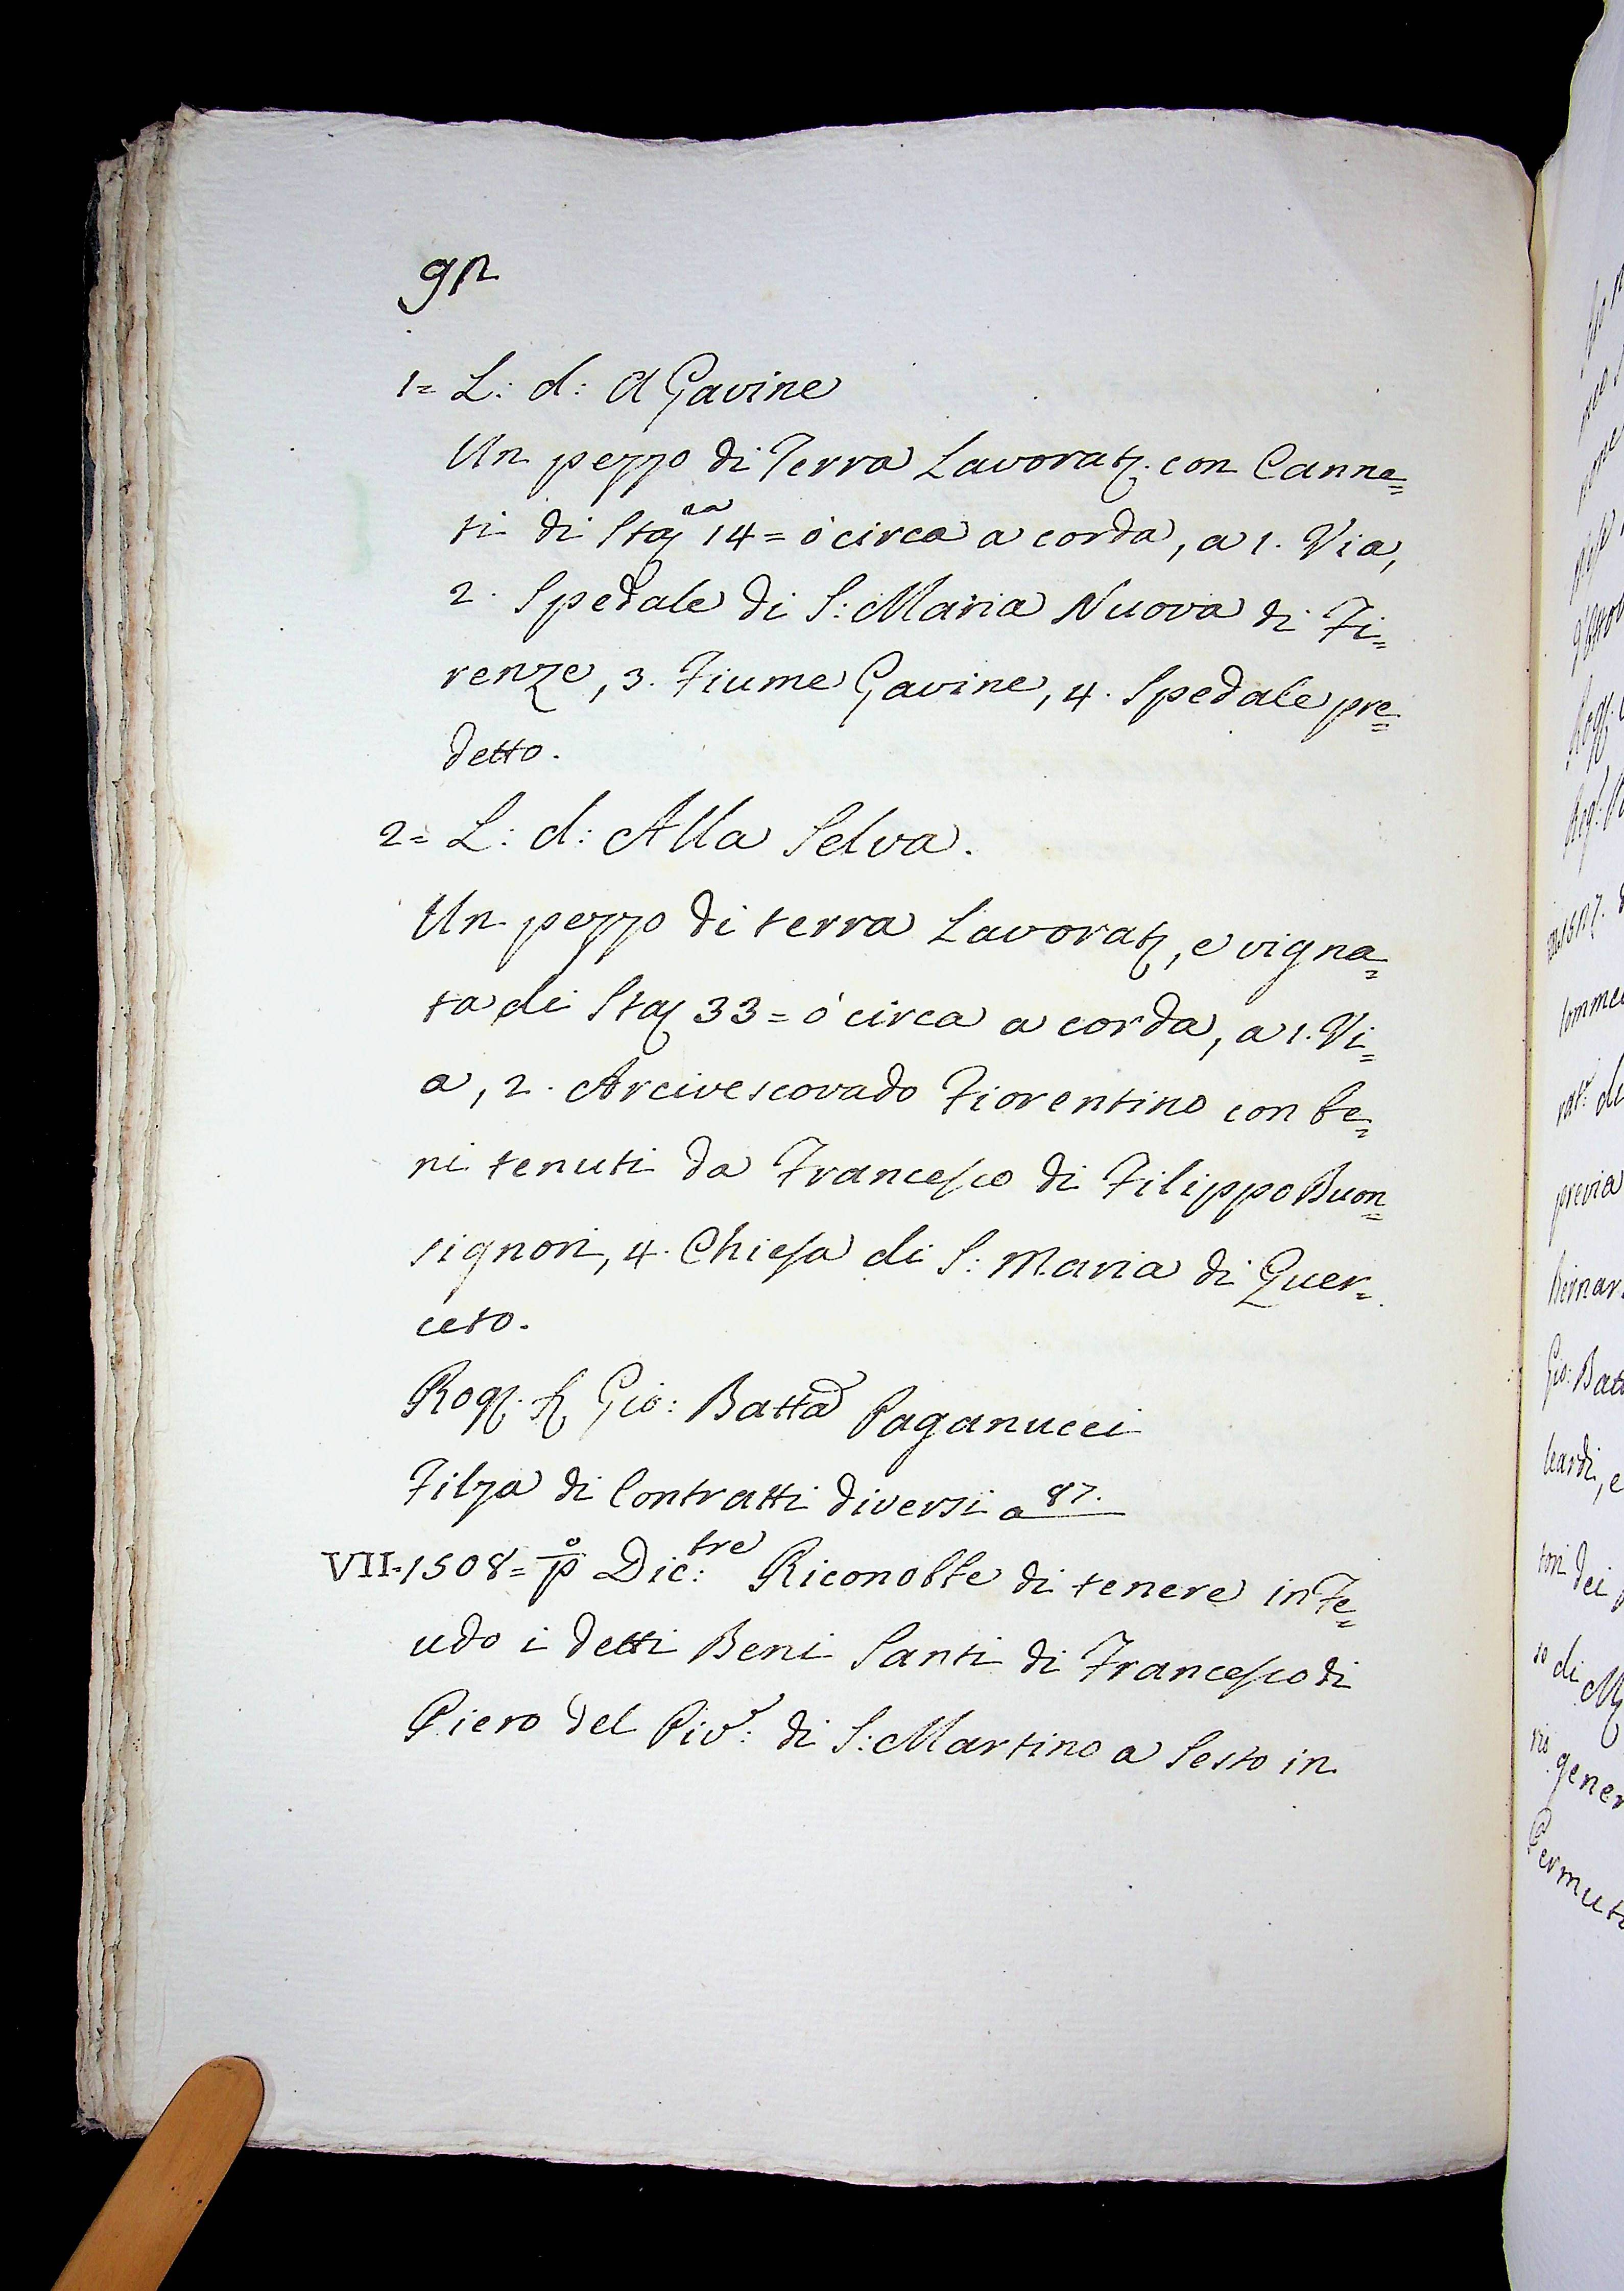 92
1= L: d: A Gavine
Un pezzo di Terra Lavorat. con Canne=
ti di Sta.ra 14= ò circa a corda, a 1. Via,
2. Spedale di S: Maria Nuova di Fi=
renze, 3. Fiume Gavine, 4. Spedale pre=
detto.
2= L: d: Alla Selva.
Un pezzo di terra Lavorat., e vigna=
ta di Sta. 33= ò circa a corda, a 1. Vi=
a, 2. Arcivescovado Fiorentino con be=
ni tenuti da Francesco di Filippo Buon=
signori, 4. Chiesa di S: Maria di Quer=
ceto.
Rog. Gio: Batta Paganucci
Filza di Contratti diversi a 87.
VII. 1508= po Dic:bre Riconobbe di tenere in Fe=
udo i detti Beni Santi di Francesco di
Piero del Piv: di S: Martino a Sesto in